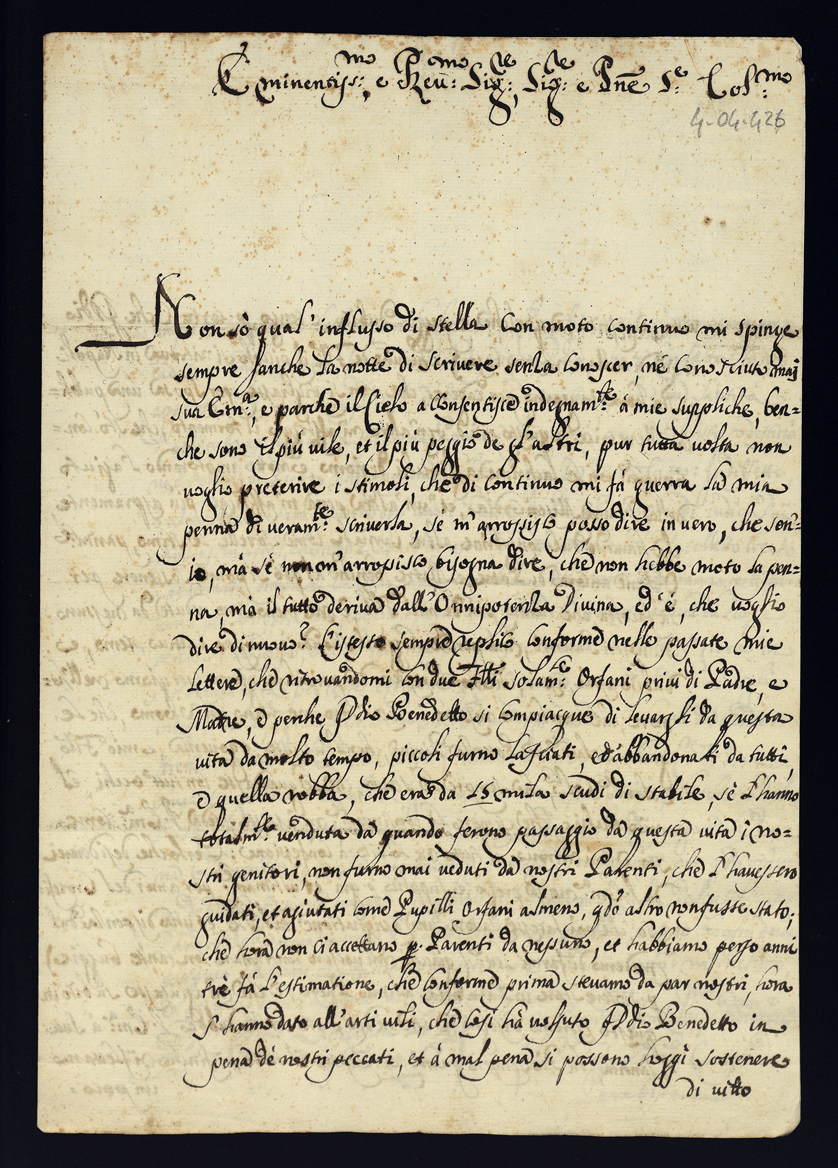 Eminentiss:mo, e Reu:mo Sig:re, Sig:re e Pñe S:e Col:mo
4-04.426
Non sò qual' influsso di stella con moto continuo mi spinge
sempre sanche la notte di scrivere senza conoscer, nè conosciuto mai
sua Em:a, e parche il Cielo a consentisce indegnam:te à mie suppliche, ben=
che sono il più vile, et il più peggio de gl'astri, pur tutta volta non
voglio preterire i stimoli, che di continuo mi fà guerra la mia
penna di veram:te scriverla, sè m'arrossisco posso dire in vero, che son'=
io, mà sè non m'arrossisco bisogna dire, che non hebbe moto la pen=
na, mà il tutto deriva dall'Onnipotenza Divina, ed è, che voglio
dire di nuovo? L'istesso sempre replico conforme nelle passate mie
lettere, che ritrovandomi con due flli solam:te Orfani privi di Padre, e
Madre, e perche Iddio Benedetto si compiacque di levargli da questa
vita da molto tempo, piccoli furno lasciati, et abbandonati da tutti,
e quella robba, che era da 15 mila scudi di stabile, sè l'hanno
total:mte venduta da quando ferono passaggio da questa vita i no=
stri genitori, non furno mai veduti da nostri Parenti, che l'havessero
guidati, et agiutati come Pupilli Orfani almeno, qdo altro non fusse stato;
che hora non ci accettano p Parenti da nessuno, et habbiamo perso anni
trè fà l'estimatione, che conforme prima stevamo da par nostri, hora
s'hanno dato all'arti vili, che così hà volsuto Iddio Benedetto in
pena dè nostri peccati, et à mal pena si possono hoggi sostenere
di vitto